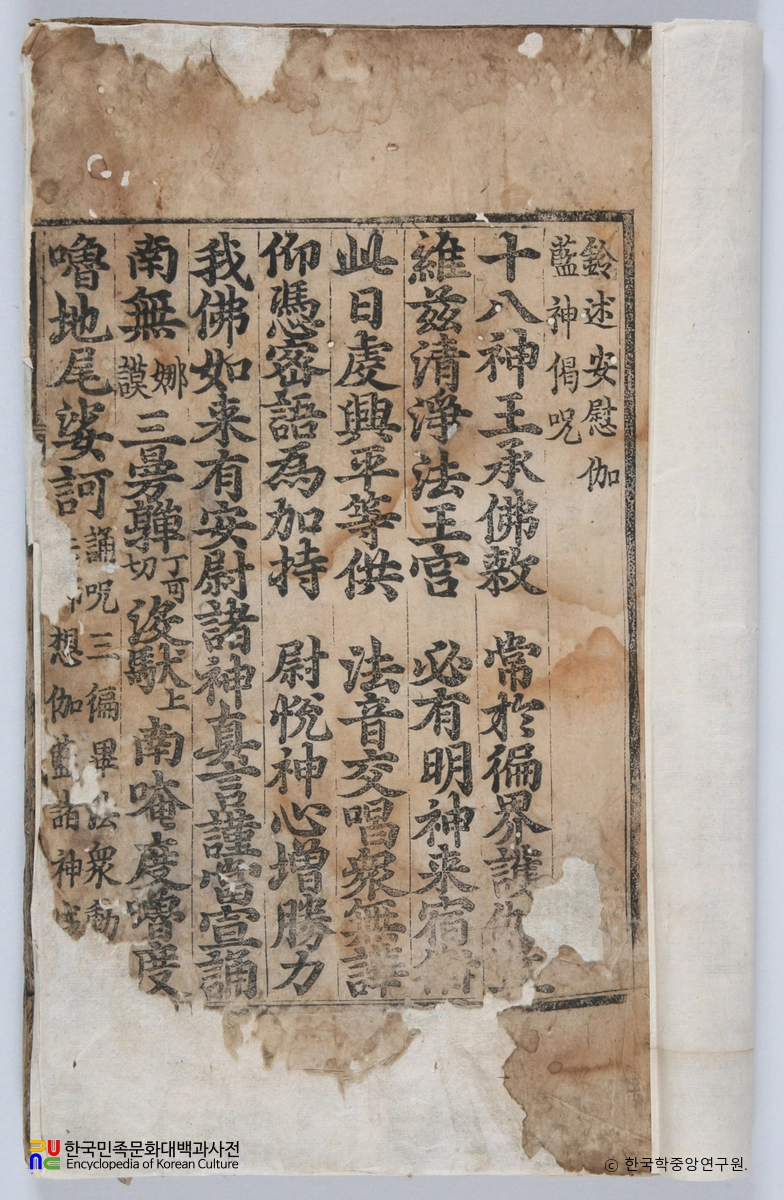 鈴述安慰伽
藍神偈呪
十八神王承佛敕 常於徧界護
維兹清淨法王宮 必有明神来宿
此日虔興平等供 法音交唱衆無譁
仰憑密語為加持 尉悅神心增勝力
我佛如来有安尉諸神真言謹當宣誦
南無 娜謨 三曼亸 丁可切 沒馱 上 南唵度嚕度
嚕地尾娑訶 誦呪三徧畢 衆動
想伽藍諸神
한국민족문화대백과사전
Encyclopedia of Korean Culture
ⓒ 한국학중앙연구원.